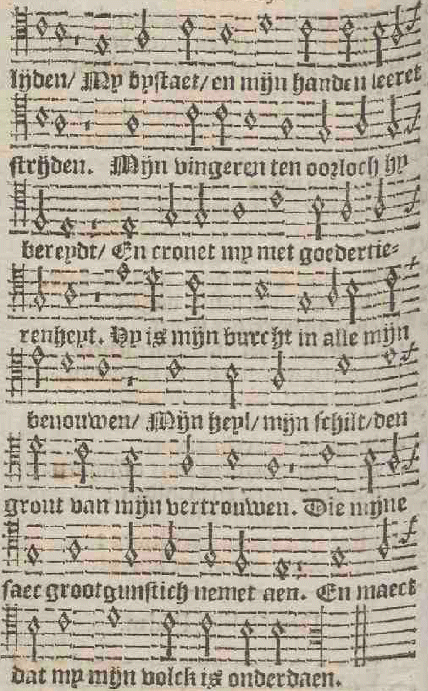 lijden/ My bystaet/ en mijn handen leeret
strijden. Mijn vingeren ten oorloch hy
bereydt/ En cronet my met goedertie-
renheyt. Hy is mijn burcht in alle mijn
benouwen/ Mijn heyl/ mijn schilt/ den
gront van mijn vertrouwen. Die mijne
saec grootgunstich nemet aen. En maect
dat my mijn volck is onderdaen.